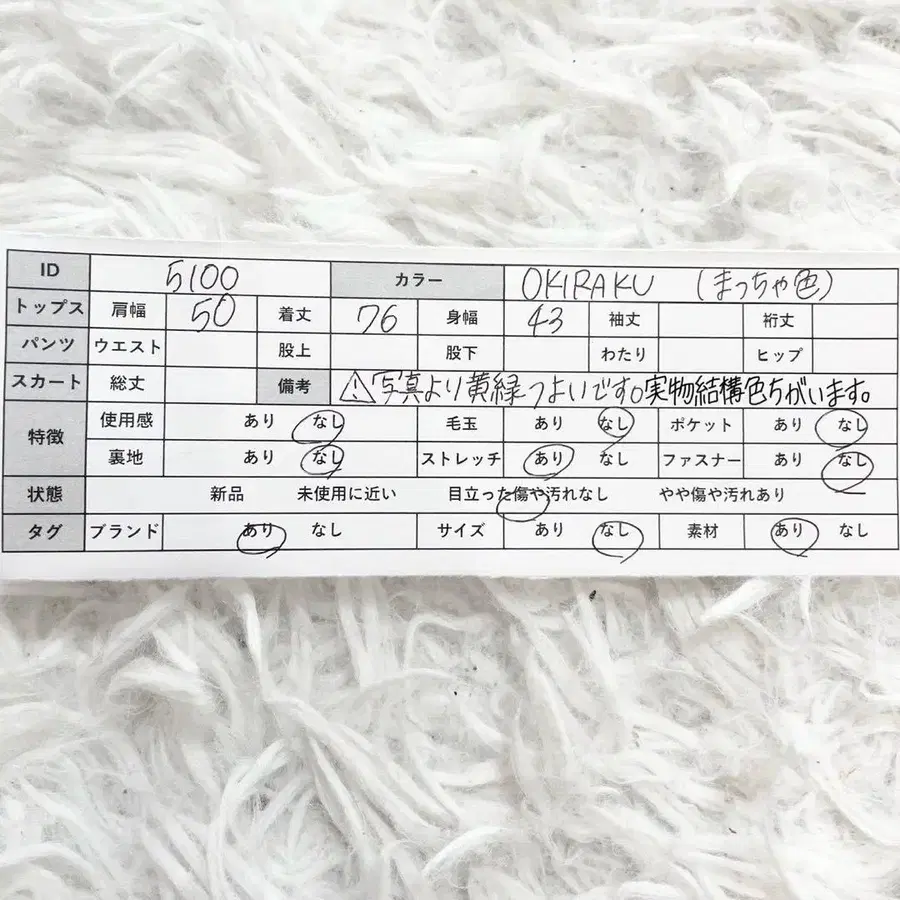 ID 5100 カラー OKIRAKU (まっちゃ色)
トップス 肩幅 50 着丈 76 身幅 43 袖丈 裄丈
パンツ ウエスト 股上 股下 わたり ヒップ
スカート 総丈 備考 ⚠写真より黄緑つよいです。実物結構色ちがいます。
特徴 使用感 あり なし 毛玉 あり なし ポケット あり なし
裏地 あり なし ストレッチ あり なし ファスナー あり なし
状態 新品 未使用に近い 目立った傷や汚れなし やや傷や汚れあり
タグ ブランド あり なし サイズ あり なし 素材 あり なし